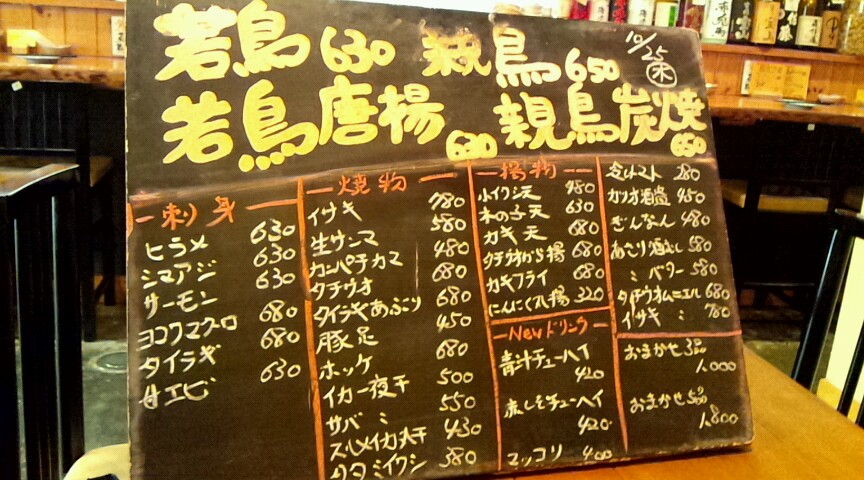 若鳥 630 親鳥 650 10/25 木
若鳥唐揚 630 親鳥炭焼 650
刺り身
ヒラメ 630
シマアジ 630
サーモン 630
ヨコワマグロ 680
タイラギ 680
甘エビ 630
焼物
イサキ 780
生サンマ 580
カンパチカマ 480
タチウオ 680
タイラギあぶり 680
豚足 450
ホッケ 680
イカ一夜干 500
サバ 〃 550
スルメイカ丸干 430
タタミイワシ 380
揚物
小イワシ天 480
木の子天 630
カキ天 680
タチウオから揚 680
カキフライ 680
にんにく丸揚 320
Newドリンク
青汁チューハイ
420
赤しそチューハイ
420
マッコリ 400
冷しトマト 280
カツオ酒盗 450
ぎんなん 480
あさり酒むし 580
〃 バター 580
タチウオムニエル 680
イサキ 〃 780
おまかせ3品
1,000
おまかせ5品
1,800